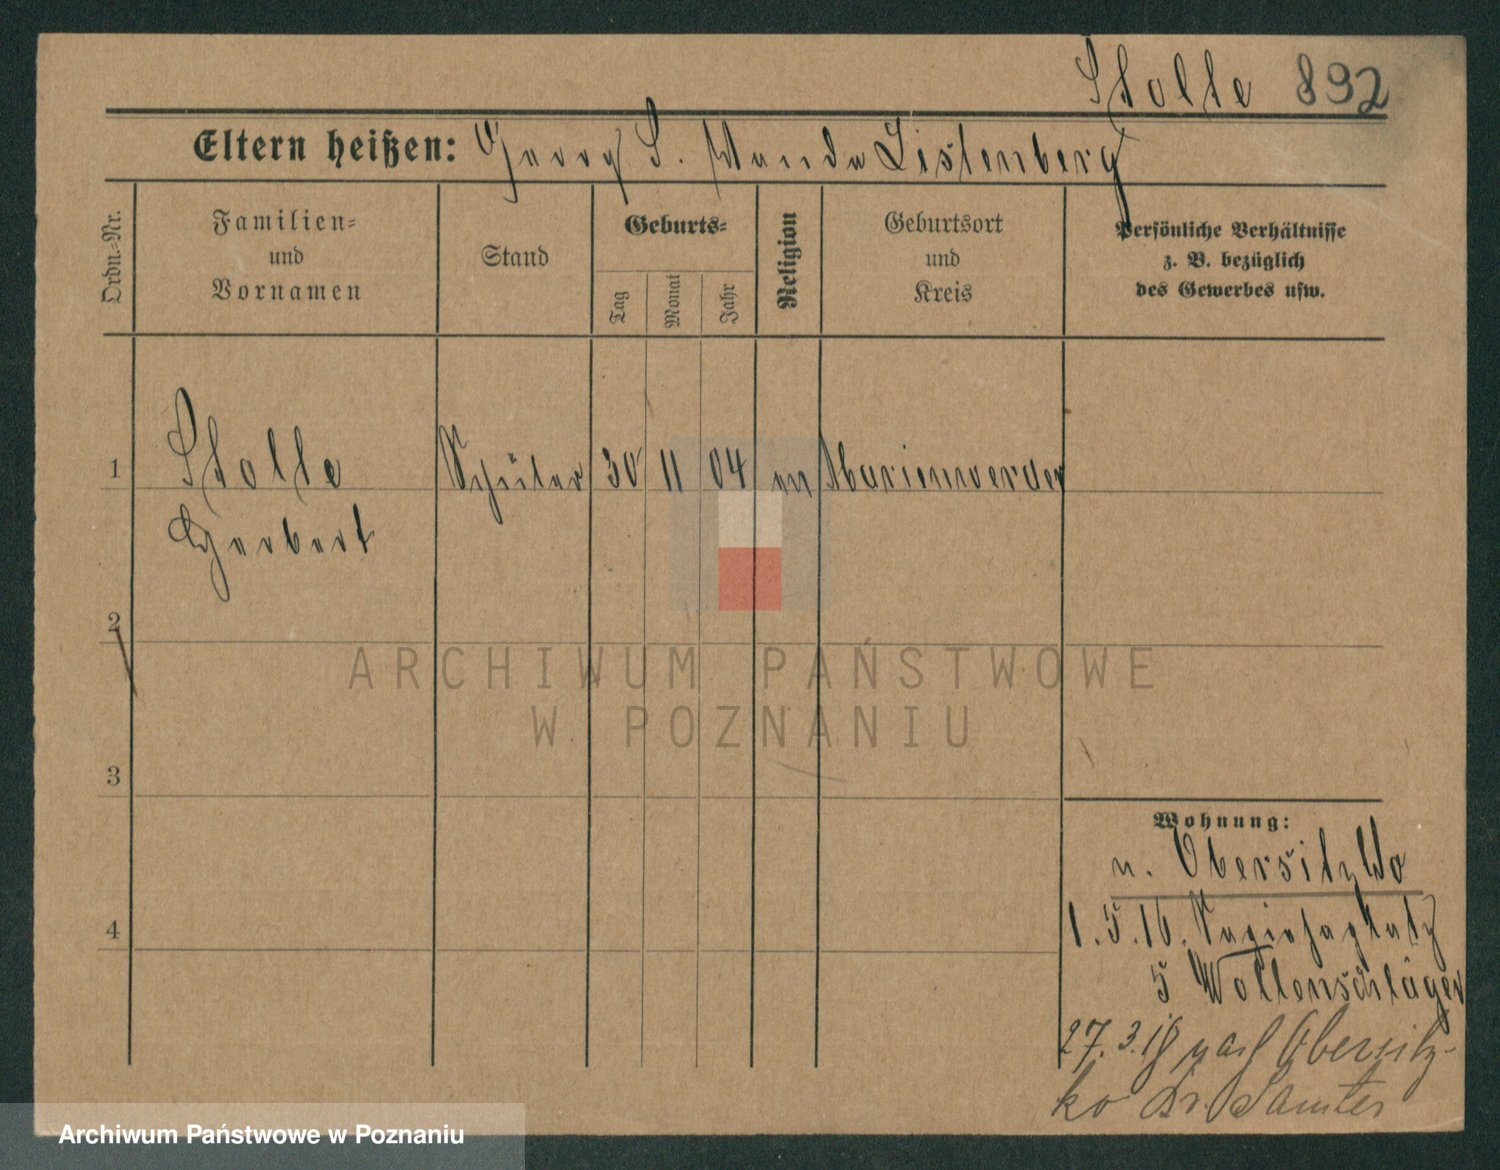 Stolle 892
Eltern heißen: Georg S. Wanda Listenberg
Ordn.=Nr.
Familien=
und
Vornamen
Stand
Geburts=
Tag
Monat
Jahr
Religion
Geburtsort
und
Kreis
Persönliche Verhältnisse
z. B. bezüglich
des Gewerbes usw.
1 Stolle Schüler 30 11 04 ev Marienwerder
Herbert
2
3
4
Wohnung:
v. Obersitzko
1.5.16.
5 Wollenschläger
27.3.18 nach Obersitz-
ko Kr. Samter
ARCHIWUM PAŃSTWOWE
W POZNANIU
Archiwum Państwowe w Poznaniu